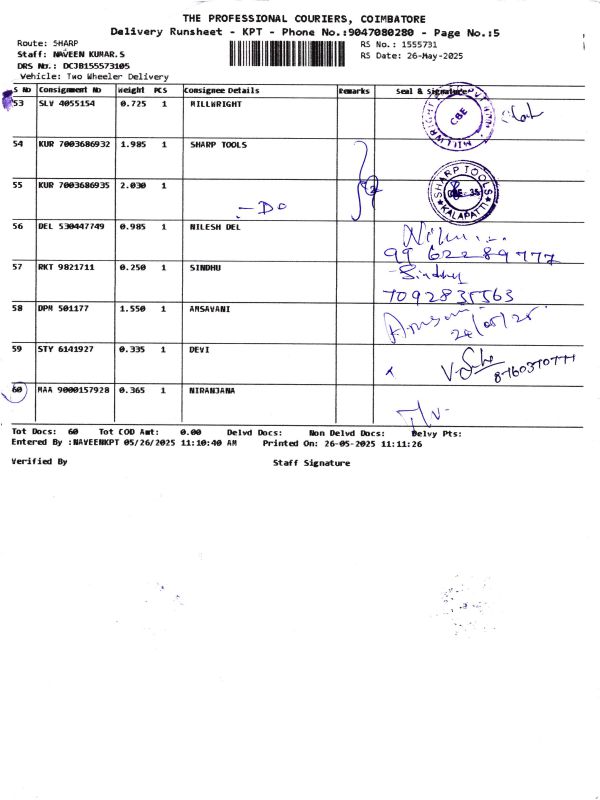 THE PROFESSIONAL COURIERS, COIMBATORE
Delivery Runsheet - KPT - Phone No.:9047080280 - Page No.:5
Route: SHARP
RS No.: 1555731
Staff: NAVEEN KUMAR.S
RS Date: 26-May-2025
DRS No.: DCJB155573105
Vehicle: Two Wheeler Delivery
S No Consignment No Weight PCS Consignee Details Remarks Seal & Signature
53 SLV 4055154 0.725 1 MILLWRIGHT
MILLWRIGHT CBE
54 KUR 7003686932 1.985 1 SHARP TOOLS
SHARP TOOLS KALAPATTI
55 KUR 7003686935 2.030 1
- Do 2
56 DEL 530447749 0.985 1 NILESH DEL
99 622 89777
57 RKT 9821711 0.250 1 SINDHU
Sindhu
7092835563
58 DPM 501177 1.550 1 AMSAVANI
26/05/25
59 STY 6141927 0.335 1 DEVI
60 MAA 9000157928 0.365 1 NIRANJANA
Tot Docs: 60 Tot COD Amt: 0.00 Delvd Docs: Non Delvd Docs: Delvy Pts:
Entered By :NAVEENKPT 05/26/2025 11:10:40 AM Printed On: 26-05-2025 11:11:26
Verified By Staff Signature